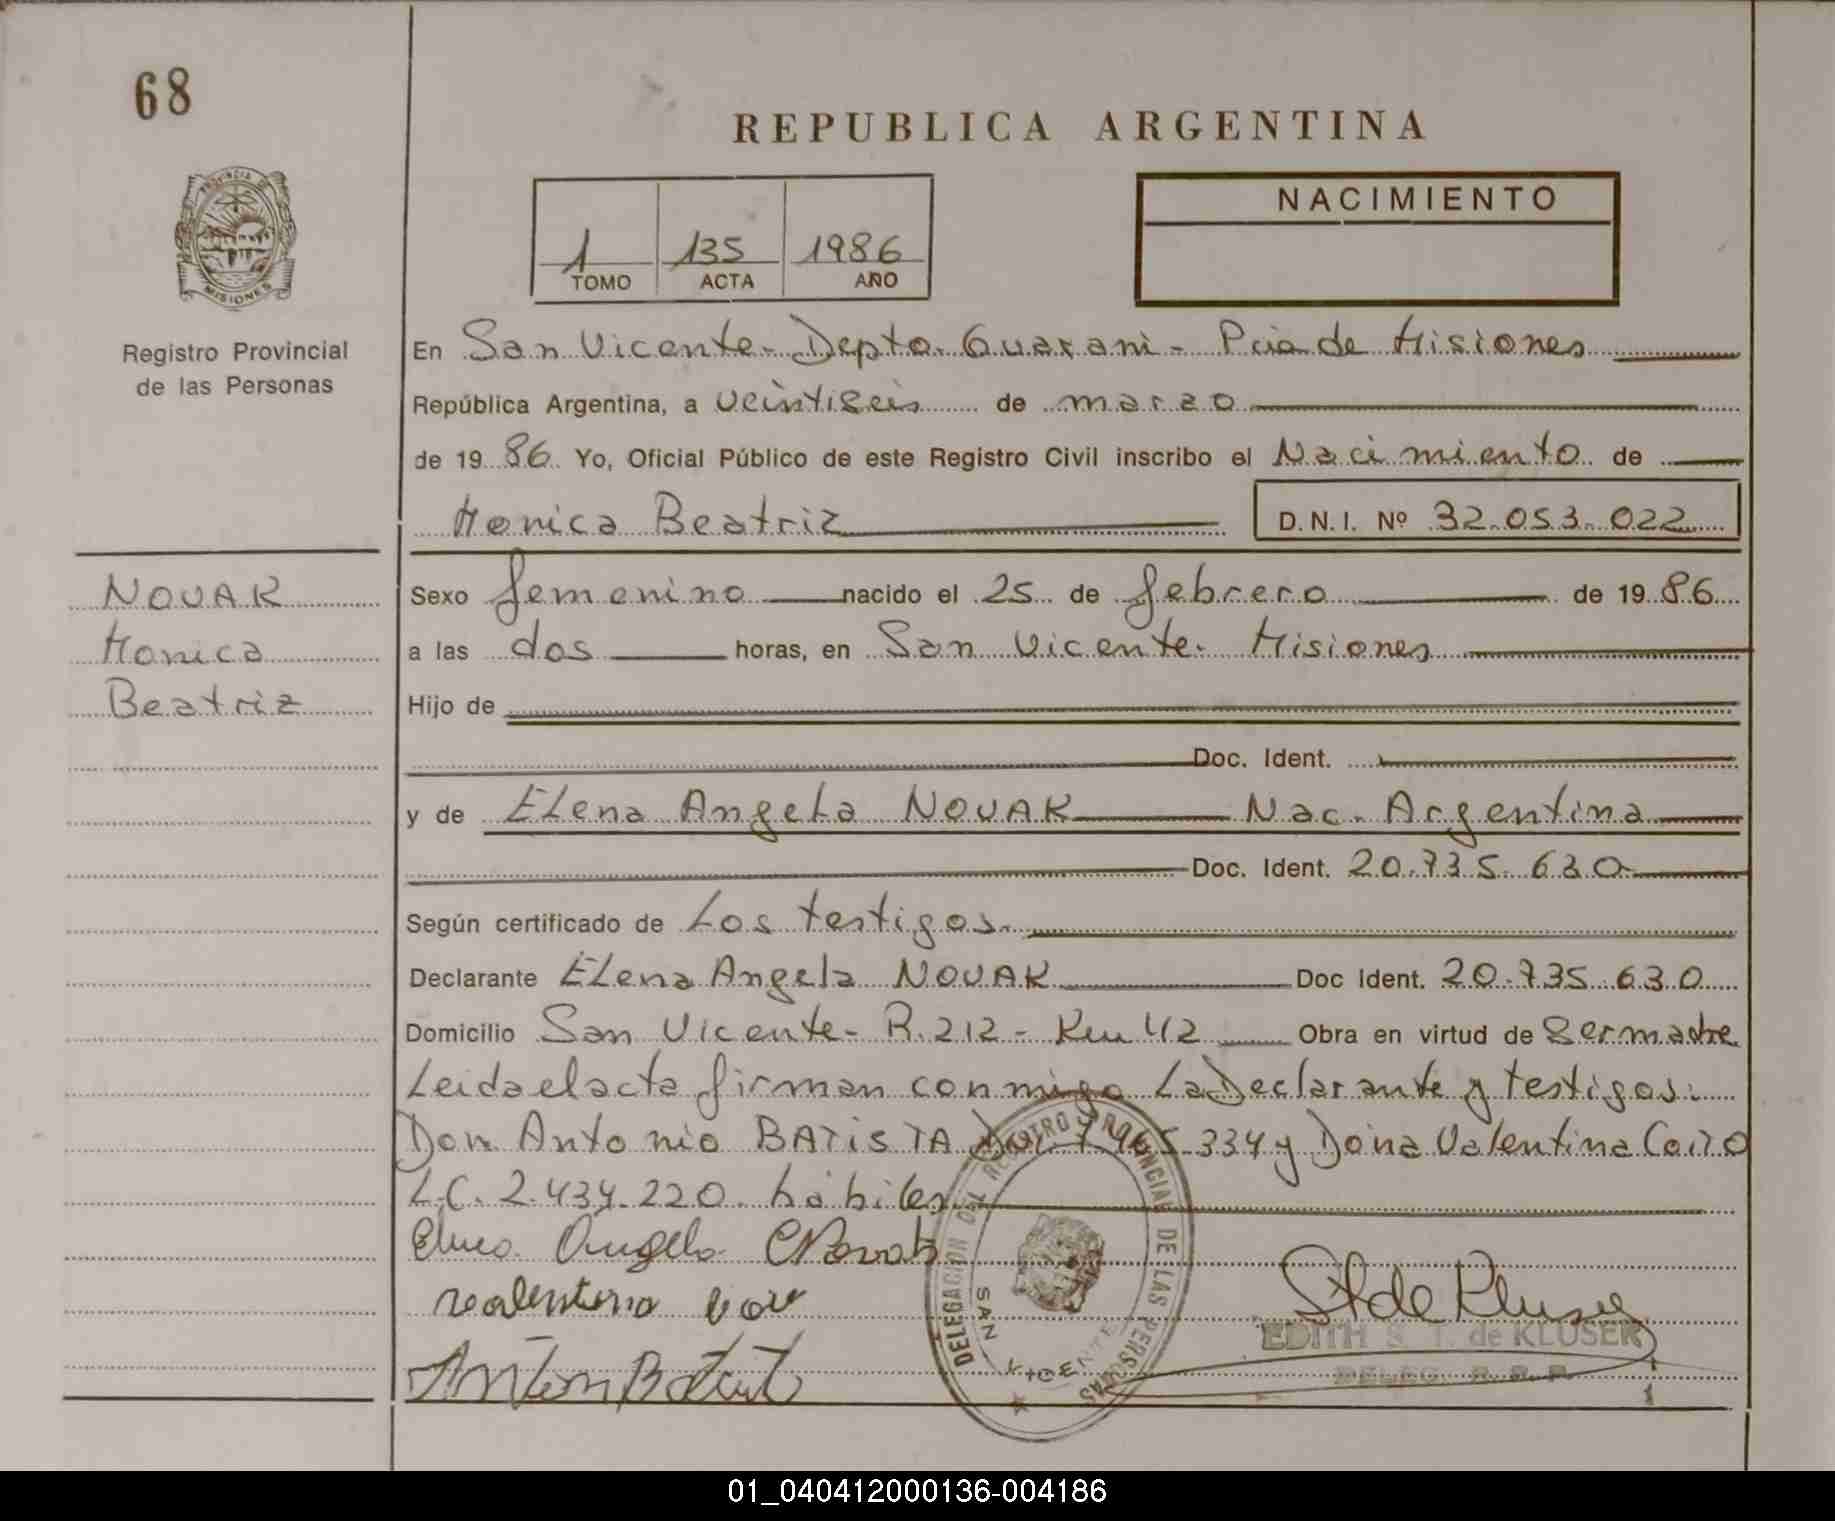 68
REPUBLICA ARGENTINA
PROVINCIA DE
MISIONES
Registro Provincial
de las Personas
1 135 1986
TOMO ACTA AÑO
NACIMIENTO
En San Vicente- Depto. Guarani- Pcia de Misiones
República Argentina, a veintiseis de marzo
de 19 86 Yo, Oficial Público de este Registro Civil inscribo el Nacimiento de
Monica Beatriz D.N.I. Nº 32.053.022
NOVAK
Monica
Beatriz
Sexo femenino nacido el 25 de febrero de 19 86
a las dos horas, en San Vicente. Misiones
Hijo de
Doc. Ident.
y de ELena AngeLa NOVAK Nac. Argentina
Doc. Ident. 20.735.630
Según certificado de Los testigos.
Declarante ELena Angela NOVAK Doc Ident. 20.735.630
Domicilio San Vicente- R.212- Km 42 Obra en virtud de Ser madre
Leida el acta firman conmigo La Declarante y testigos:
Don Antonio BATISTA 334 y Doña Valentina
L.C. 2.434.220. hábiles
Elena Angela Novak
valentina
Anton
DELEGACION DEL REGISTRO PROVINCIAL DE LAS PERSONAS
SAN VICENTE
EDITH S. T. de KLUSER
DELEG. R. P. P.
01_040412000136-004186